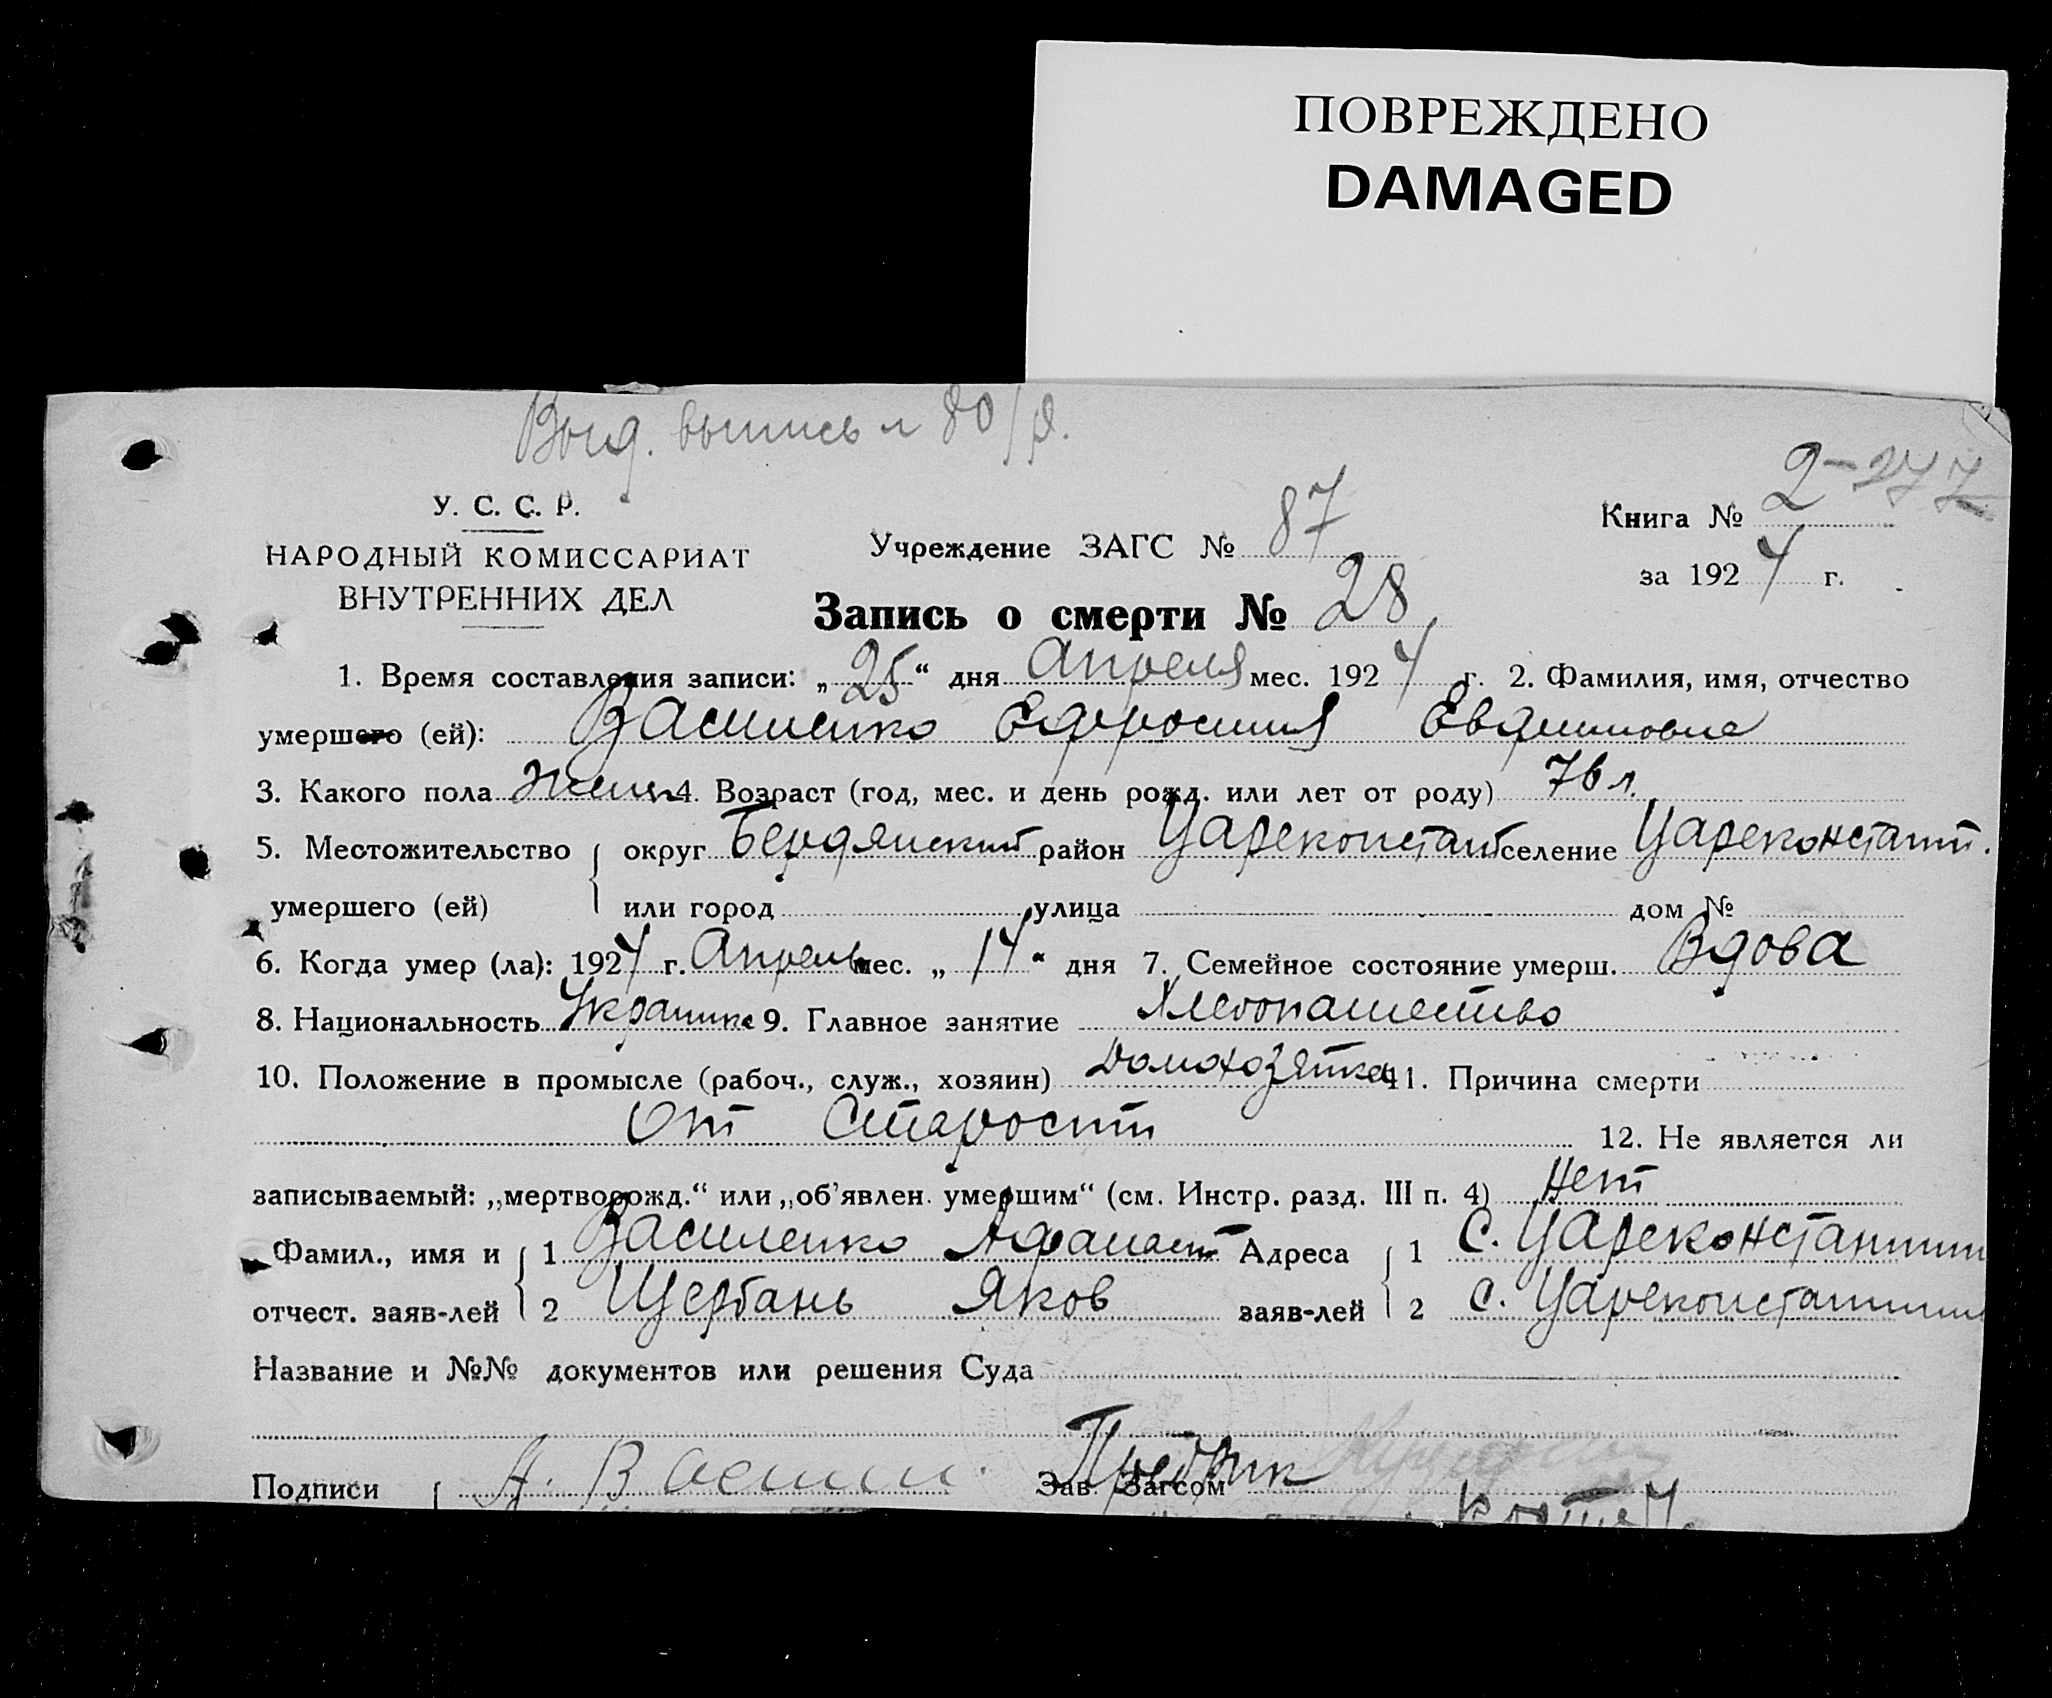 ПОВРЕЖДЕНО
DAMAGED
Выд. выпись 80/р.
У. С. С. Р.
НАРОДНЫЙ КОМИССАРИАТ
ВНУТРЕННИХ ДЕЛ
Учреждение ЗАГС № 87
Книга № 2-277
за 1924 г.
Запись о смерти № 28
1. Время составления записи: „25“ дня Апреля мес. 1924 г. 2. Фамилия, имя, отчество
умершего (ей): Василенко Ефросиния Евфимовна
3. Какого пола женск 4. Возраст (год, мес. и день рожд. или лет от роду) 76 л.
5. Местожительство округ Бердянский район Цареконстант селение Цареконстант.
умершего (ей) или город улица дом №
6. Когда умер (ла): 1924 г. Апрель мес. „14“ дня 7. Семейное состояние умерш. Вдова
8. Национальность Украинка 9. Главное занятие Хлебопашество
10. Положение в промысле (рабоч., служ., хозяин) Домохозяйка 11. Причина смерти
От Старости
12. Не является ли
записываемый: „мертворожд.“ или „об’явлен. умершим“ (см. Инстр. разд. III п. 4) нет
Фамил., имя и 1 Василенко Афанасий Адреса 1 с. Цареконстантин
отчест. заяв-лей 2 Щербань Яков заяв-лей 2 с. Цареконстантин
Название и №№ документов или решения Суда
Подписи А. Васил. Зав. Загсом